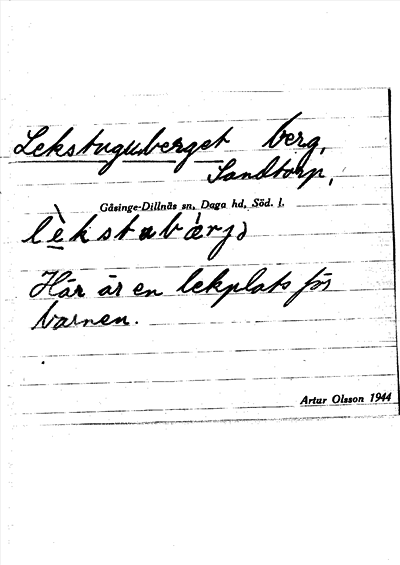 Lekstuguberget berg,
Sandtorp,
Gåsinge-Dillnäs sn, Daga hd, Söd. l.
Här är en lekplats för
barnen.
Artur Olsson 1944